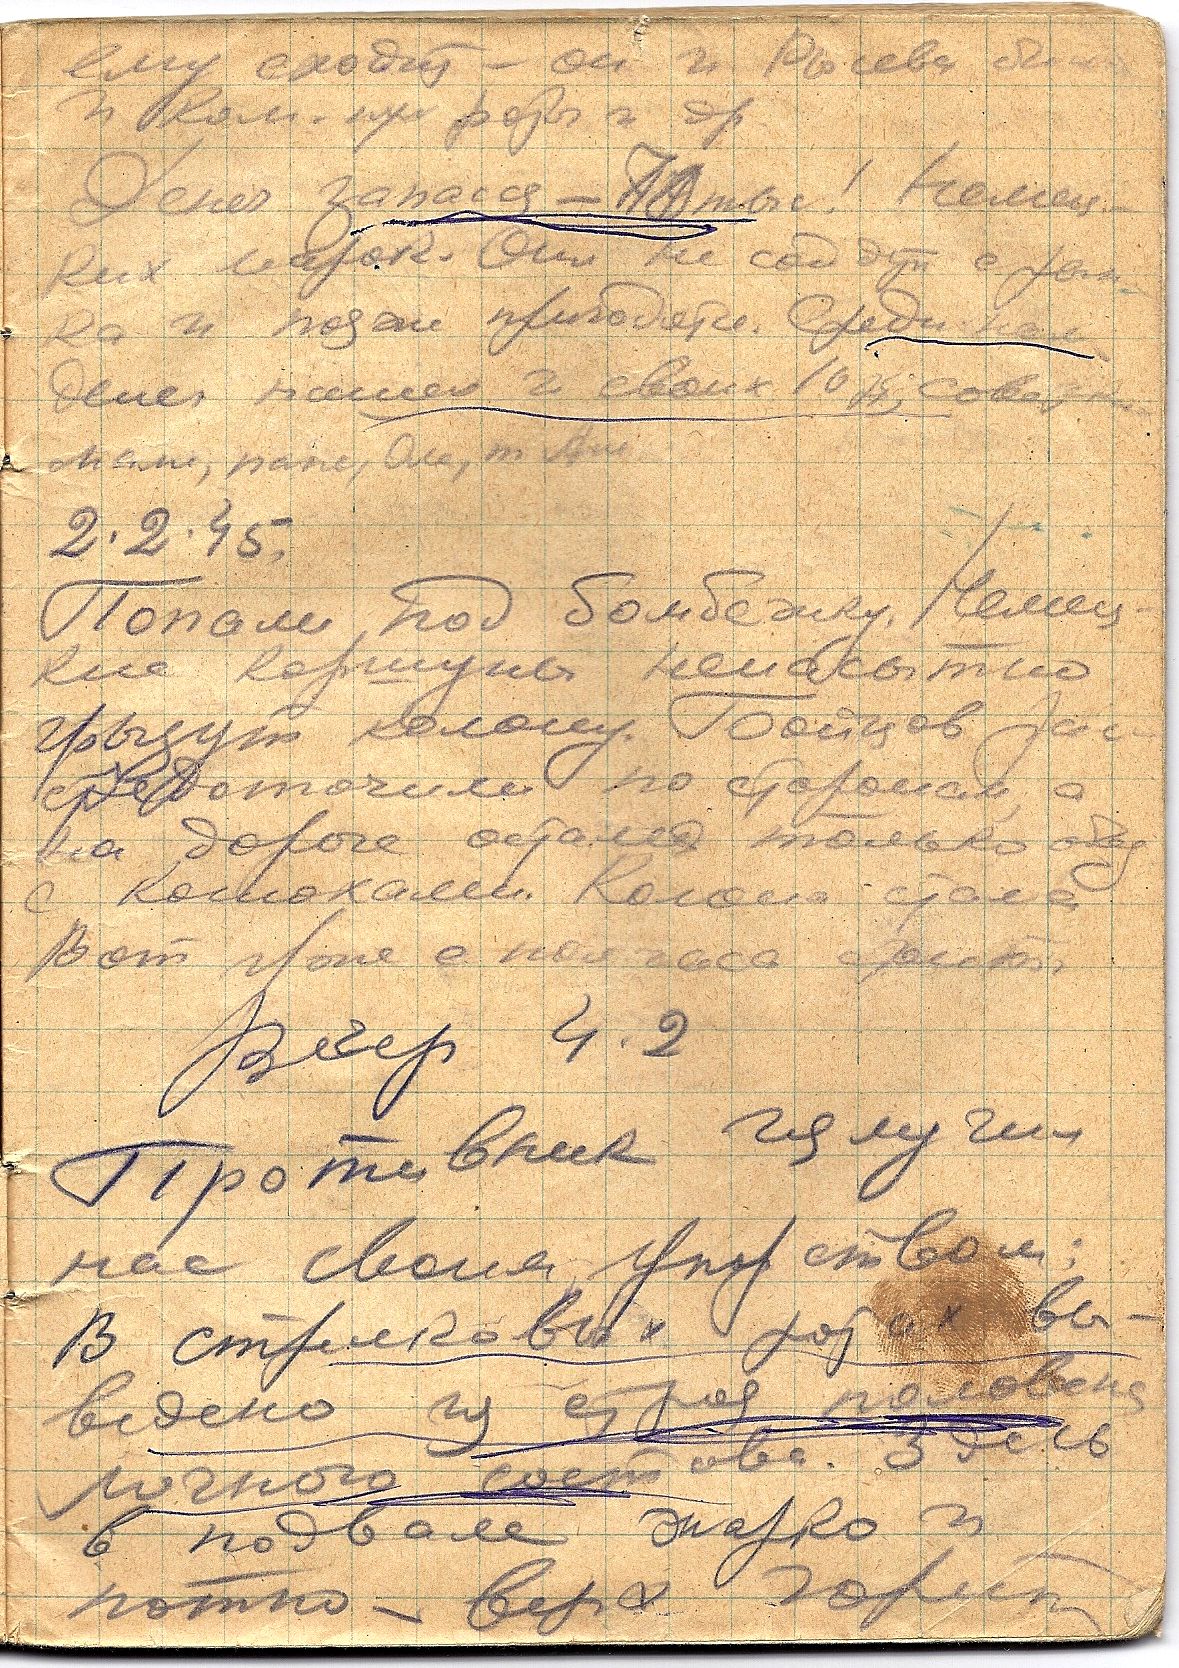 ему сходит – он и
и ком.
Денег запасся – тыс! Немец-
ких марок. Они не сойдут с рын-
ка и позже пригодятся. Среди нем
денег нашел и своих 10 к. советск
мами, папе, Оле,
2.2.45.
Попали под бомбежку. Немец-
кие коршуны ненасытно
грызут колонну. Бойцов рас-
средоточили по сторонам, а
на дороге остался только обоз
с конюхами. Колонна стала
Вот уже с полчаса стоит
Вечер 4.2
Противник изумил
нас своим упорством:
В стрелковых ротах вы-
ведено из строя половина
личного состава. Здесь
в подвале жарко и
потно – верх горит